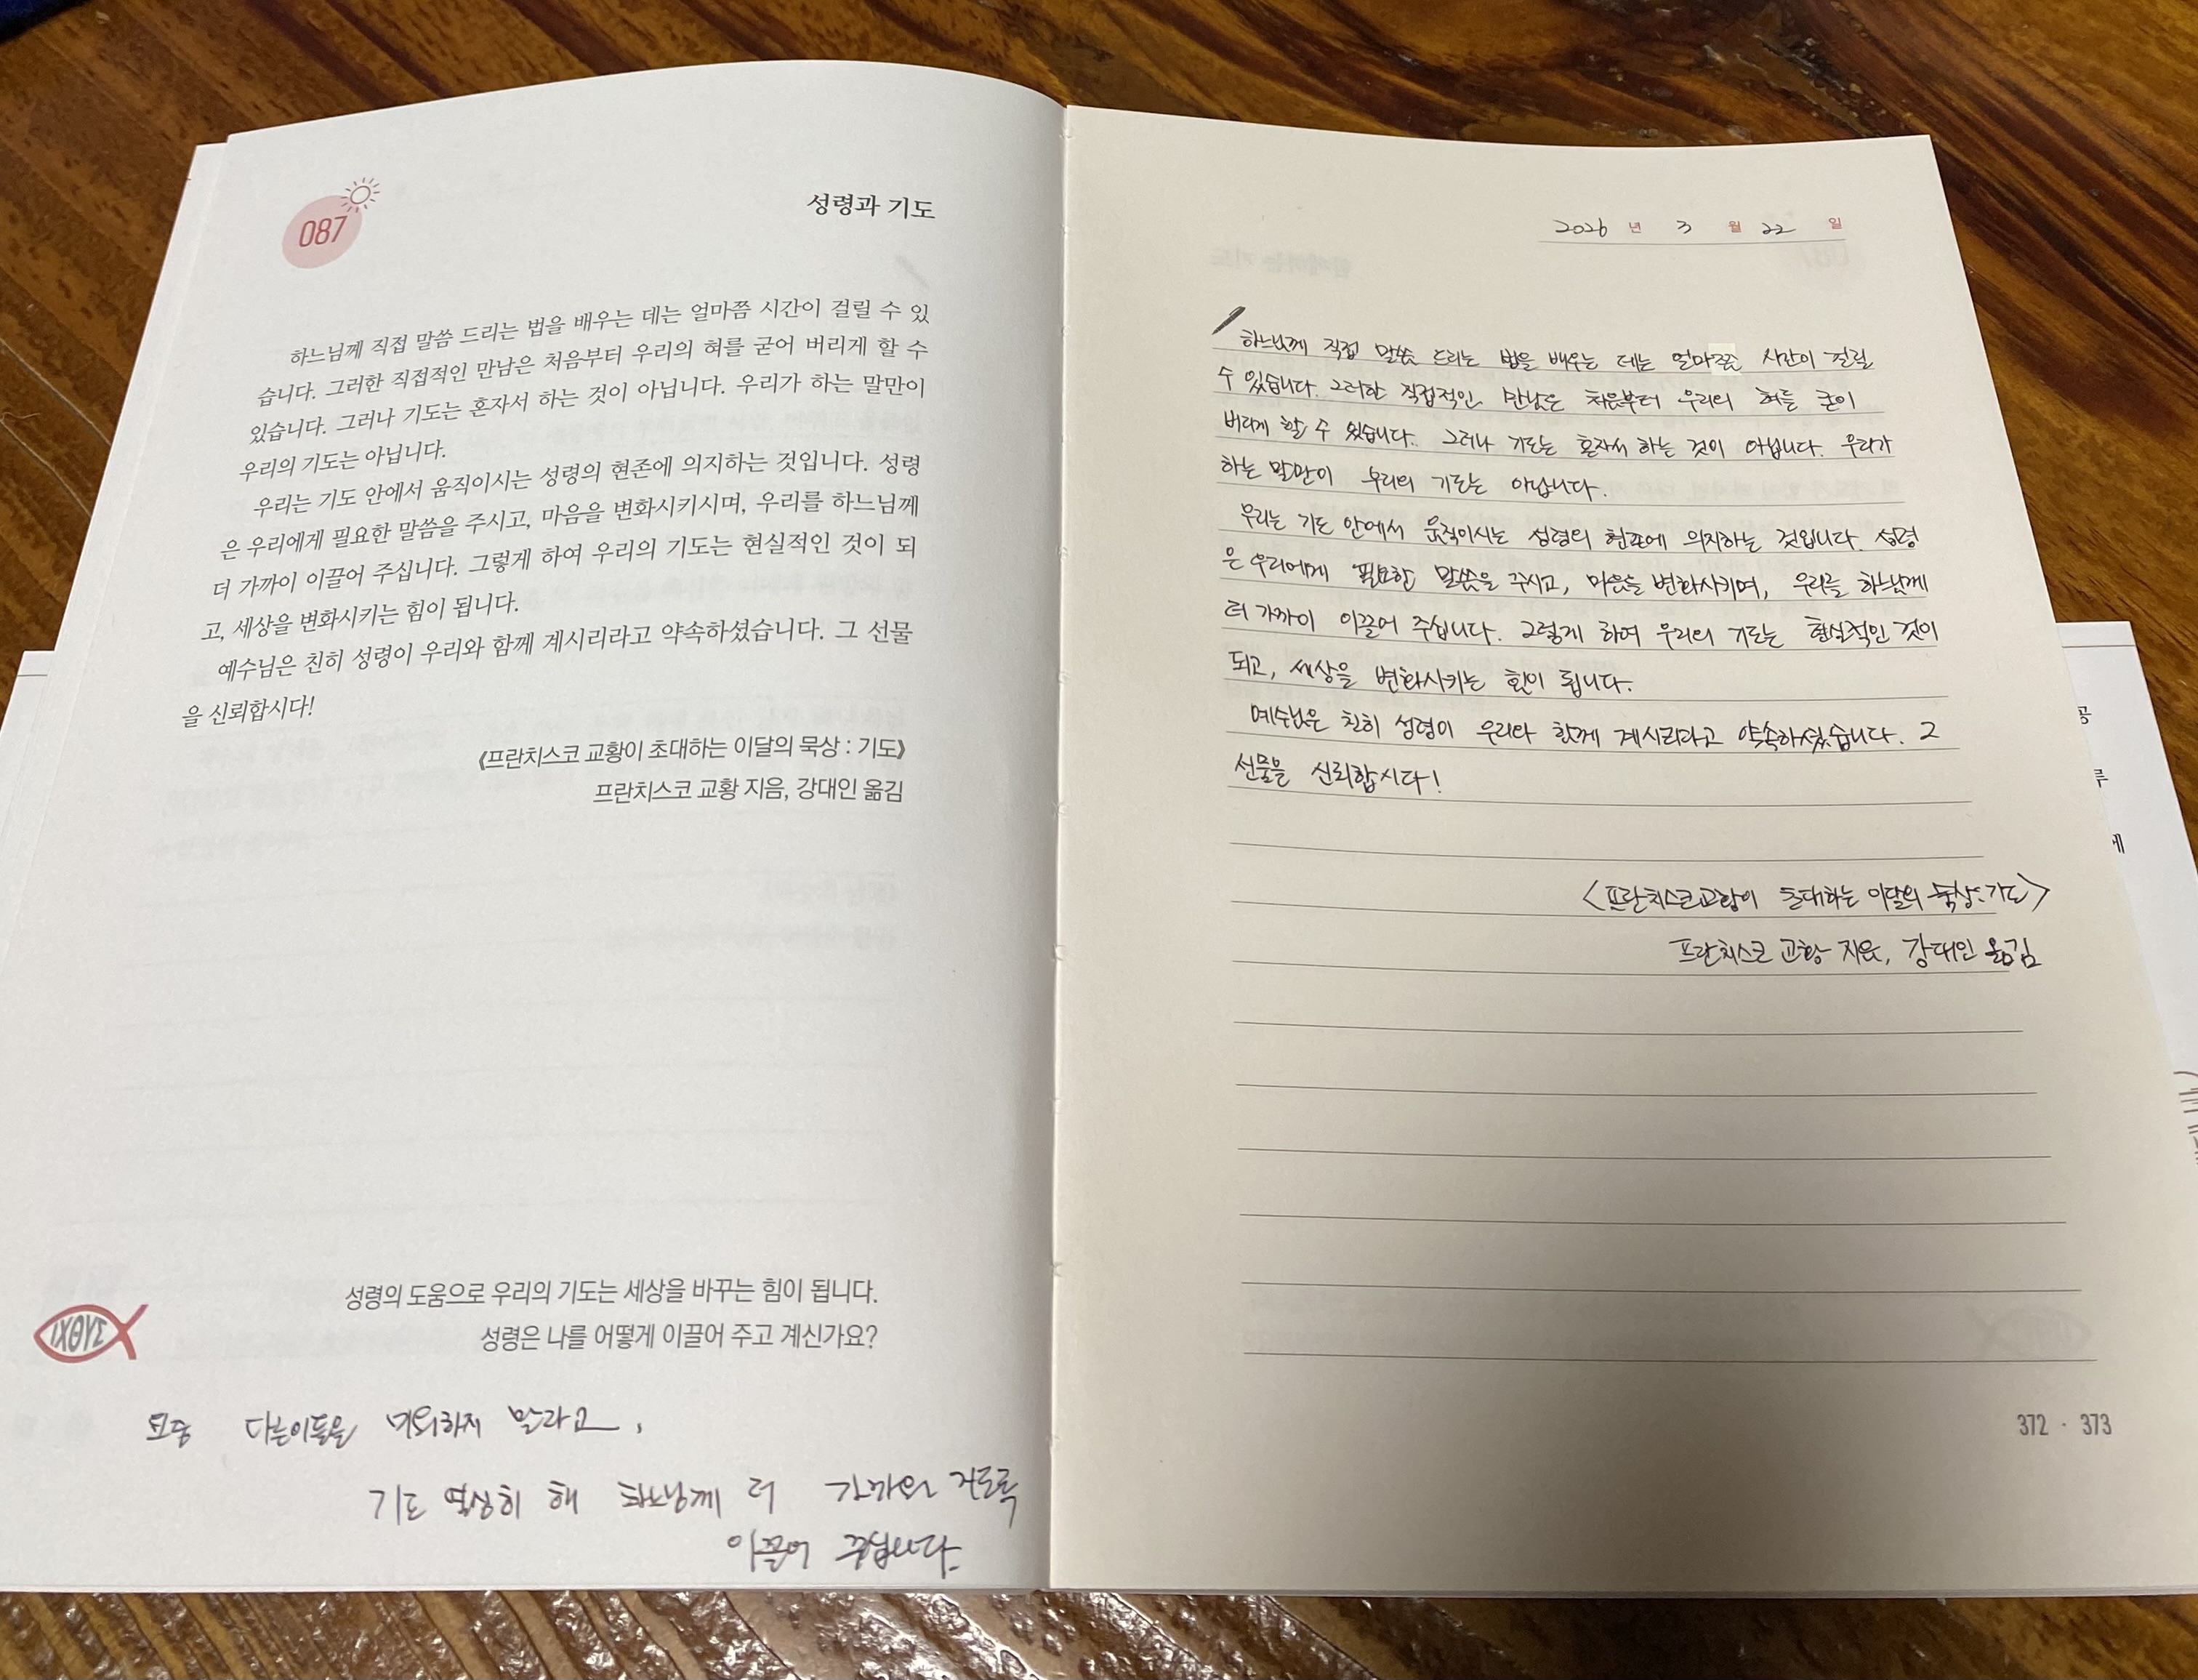 087
성령과 기도
하느님께 직접 말씀 드리는 법을 배우는 데는 얼마쯤 시간이 걸릴 수 있
습니다. 그러한 직접적인 만남은 처음부터 우리의 혀를 굳어 버리게 할 수
있습니다. 그러나 기도는 혼자서 하는 것이 아닙니다. 우리가 하는 말만이
우리의 기도는 아닙니다.
우리는 기도 안에서 움직이시는 성령의 현존에 의지하는 것입니다. 성령
은 우리에게 필요한 말씀을 주시고, 마음을 변화시키시며, 우리를 하느님께
더 가까이 이끌어 주십니다. 그렇게 하여 우리의 기도는 현실적인 것이 되
고, 세상을 변화시키는 힘이 됩니다.
예수님은 친히 성령이 우리와 함께 계시리라고 약속하셨습니다. 그 선물
을 신뢰합시다!
《프란치스코 교황이 초대하는 이달의 묵상 : 기도》
프란치스코 교황 지음, 강대인 옮김
성령의 도움으로 우리의 기도는 세상을 바꾸는 힘이 됩니다.
성령은 나를 어떻게 이끌어 주고 계신가요?
ΙΧΘΥΣ
다른이들을 미워하지 말라고,
기도 열심히 해 하느님께 더 가까워 지도록
이끌어 주십니다.
2026 년 3 월 22 일
하느님께 직접 말씀 드리는 법을 배우는 데는 얼마쯤 시간이 걸릴
수 있습니다. 그러한 직접적인 만남은 처음부터 우리의 혀를 굳어
버리게 할 수 있습니다. 그러나 기도는 혼자서 하는 것이 아닙니다. 우리가
하는 말만이 우리의 기도는 아닙니다.
우리는 기도 안에서 움직이시는 성령의 현존에 의지하는 것입니다. 성령
은 우리에게 필요한 말씀을 주시고, 마음을 변화시키며, 우리를 하느님께
더 가까이 이끌어 주십니다. 그렇게 하여 우리의 기도는 현실적인 것이
되고, 세상을 변화시키는 힘이 됩니다.
예수님은 친히 성령이 우리와 함께 계시리라고 약속하셨습니다. 그
선물을 신뢰합시다!
<프란치스코교황이 초대하는 이달의 묵상:기도>
프란치스코 교황 지음, 강대인 옮김
372 · 373